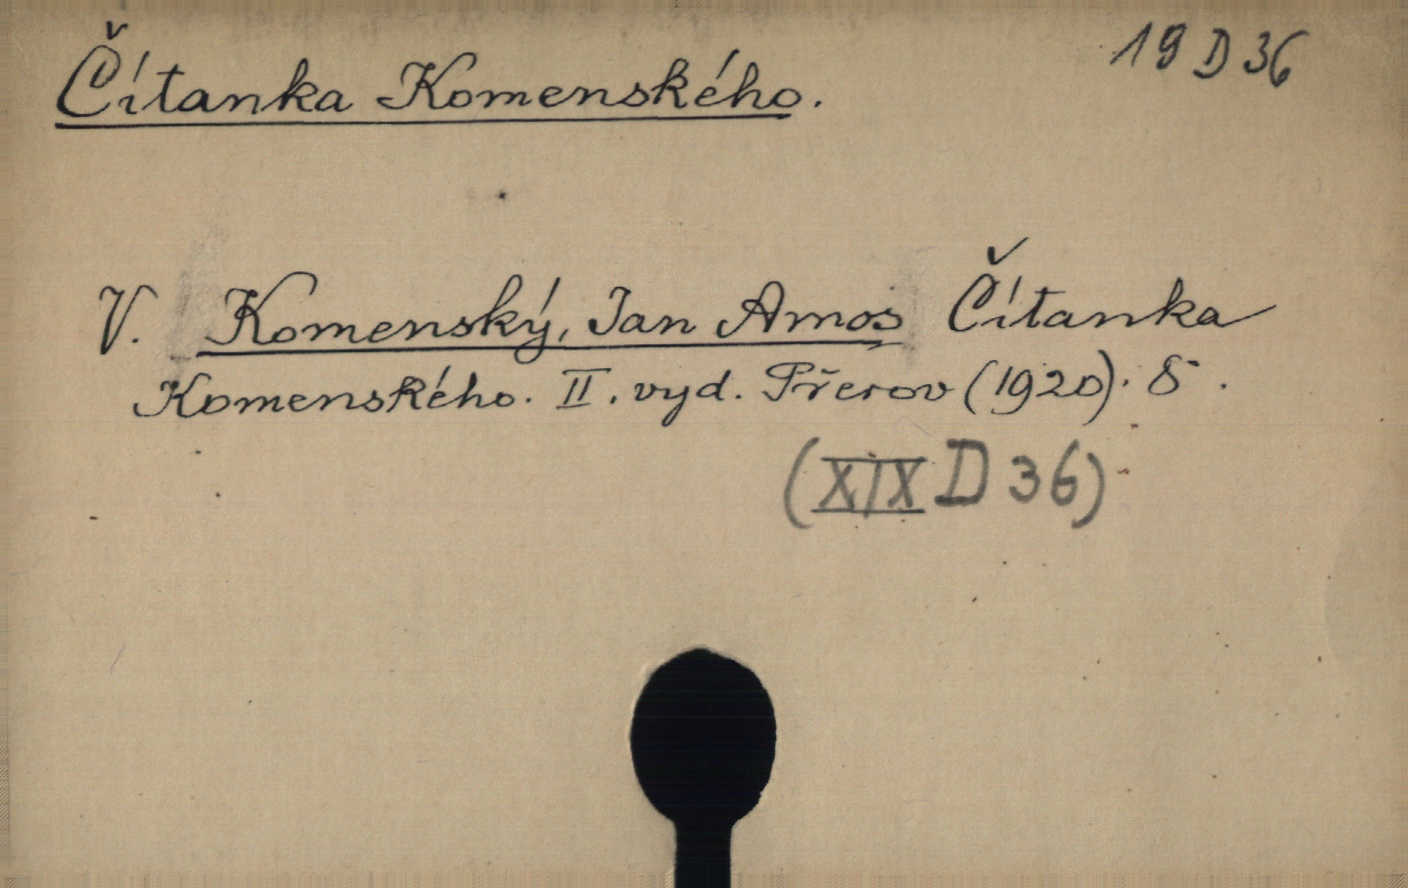 19 D 36
Čítanka Komenského.
V. Komenský, Jan Amos Čítanka
Komenského. II. vyd. Přerov (1920). 8°.
(XIX D 36)